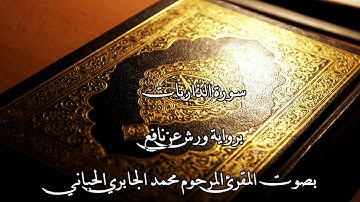 سورة الذاريات
برواية ورش عن نافع
بصوت المقرئ المرحوم محمد الجابري الحياني